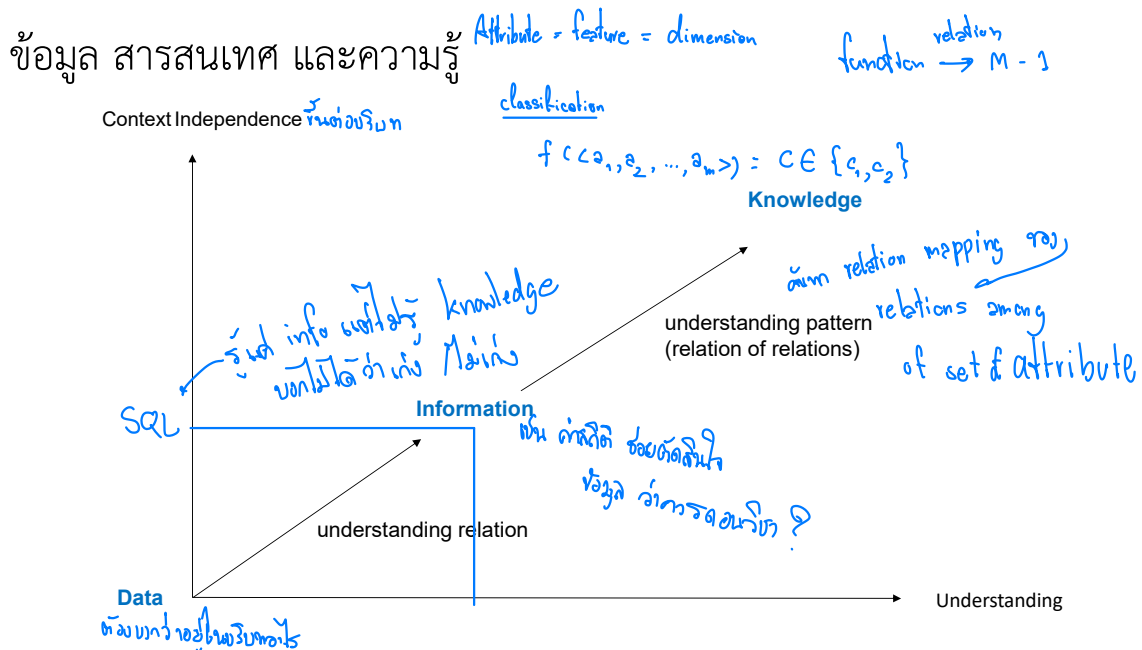 ข้อมูล สารสนเทศ และความรู้
Attribute = feature = dimension
relation
function → M - 1
classification
Context Independence ขึ้นต่อบริบท
f (<a₁, a₂, ..., aₘ>) = C ∈ {c₁, c₂}
Knowledge
ค้นหา relation mapping ของ
relations among
of set of attribute
understanding pattern
(relation of relations)
รู้แต่ info แต่ไม่รู้ knowledge
บอกไม่ได้ว่าเก่ง / ไม่เก่ง
SQL
Information
เช่น ค่าสถิติ ช่วยตัดสินใจ
ข้อมูล ว่าควรถอนวิชา ?
understanding relation
Data
Understanding
ต้องบอกว่าอยู่ในบริบทอะไร